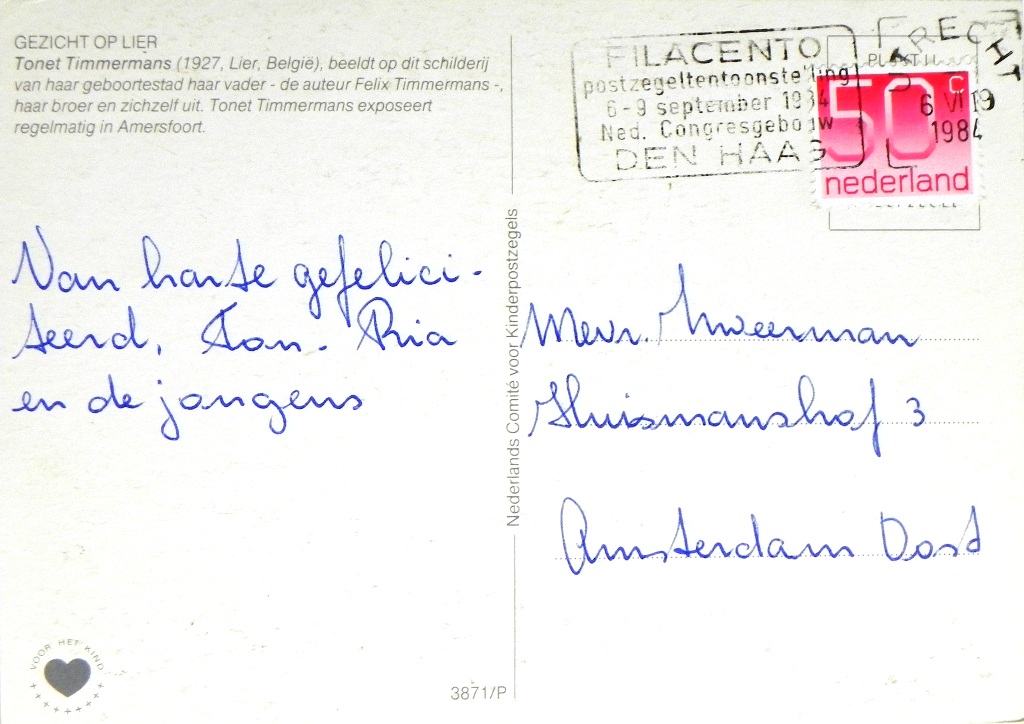 GEZICHT OP LIER
Tonet Timmermans (1927, Lier, België), beeldt op dit schilderij
van haar geboortestad haar vader - de auteur Felix Timmermans -,
haar broer en zichzelf uit. Tonet Timmermans exposeert
regelmatig in Amersfoort.
Van harte gefelici-
teerd, Ton - Ria
en de jongens
VOOR HET KIND
3871/P
Nederlands Comité voor Kinderpostzegels
FILACENTO
postzegeltentoonstelling
6-9 september 1984
Ned. Congresgebouw
DEN HAAG
UTRECHT
6 VI 19
1984
50 c
nederland
Mevr. Zweerman
Huismanshof 3
Amsterdam Oost